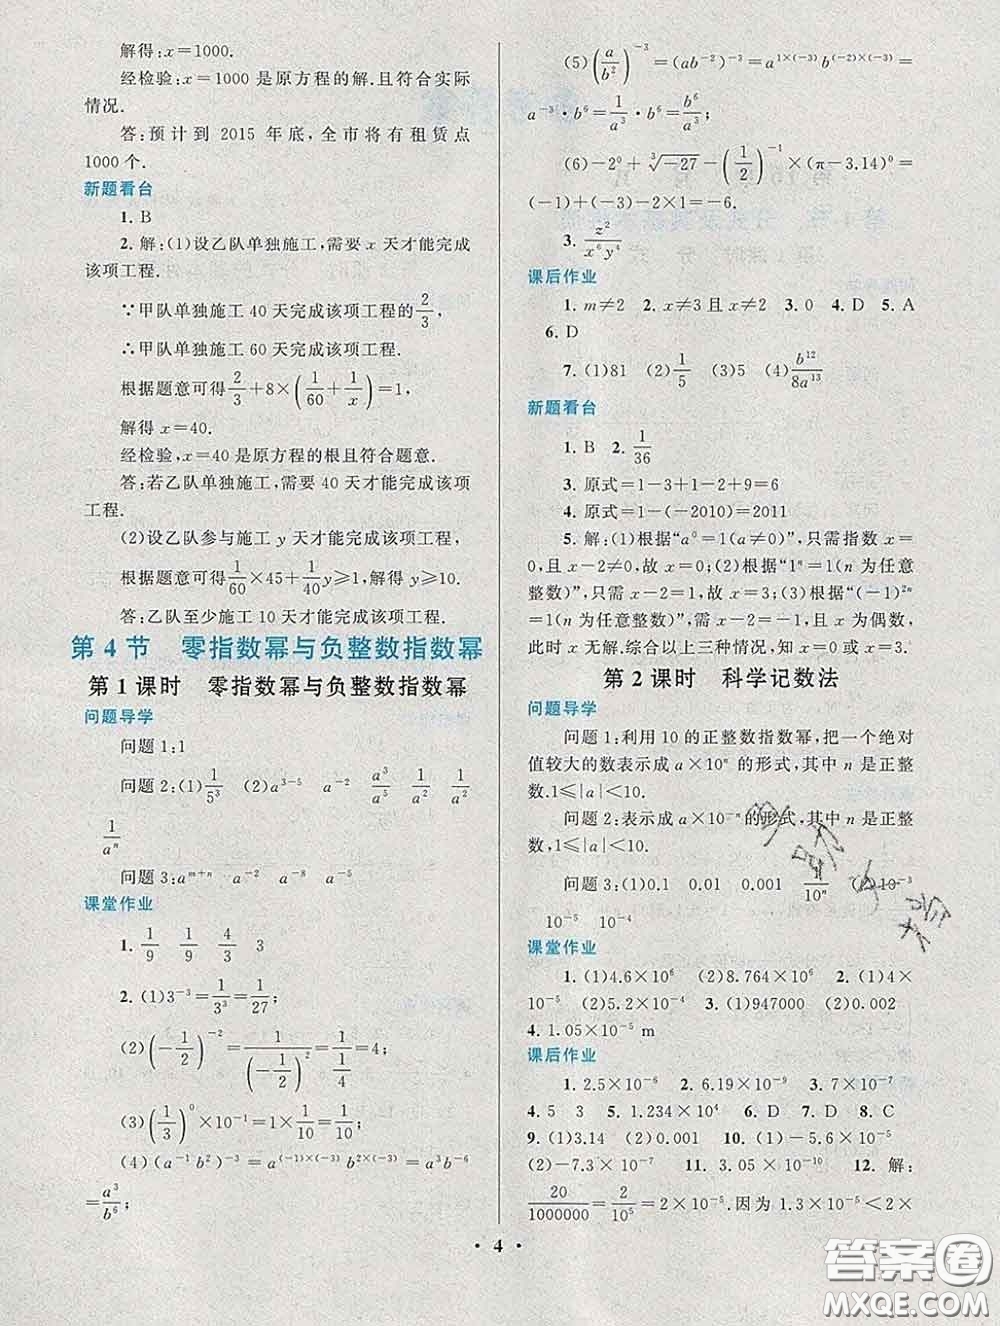 解得:x=1000.
经检验:x=1000 是原方程的解.且符合实际
情况.
答:预计到 2015 年底,全市将有租赁点
1000 个.
新题看台
1. B
2. 解:(1)设乙队单独施工,需要 x 天才能完成
该项工程.
∵甲队单独施工 40 天完成该项工程的 2/3,
∴甲队单独施工 60 天完成该项工程.
根据题意可得 2/3+8×(1/60+1/x)=1,
解得 x=40.
经检验,x=40 是原方程的根且符合题意.
答:若乙队单独施工,需要 40 天才能完成该项
工程.
(2)设乙队参与施工 y 天才能完成该项工程,
根据题意可得 1/60×45+1/40y≥1,解得 y≥10.
答:乙队至少施工 10 天才能完成该项工程.
第 4 节 零指数幂与负整数指数幂
第 1 课时 零指数幂与负整数指数幂
问题导学
问题 1:1
问题 2:(1) 1/5³ (2)a³⁻⁵ a⁻² a³/a⁵ 1/a²
1/aⁿ
问题 3:aᵐ⁺ⁿ a⁻² a⁻⁸ a⁻⁵
课堂作业
1. 1/9 1/9 4/3 3
2. (1)3⁻³=1/3³=1/27;
(2)(-1/2)⁻²=1/(-1/2)²=1/(1/4)=4;
(3)(1/3)⁰×10⁻¹=1×1/10=1/10;
(4)(a⁻¹b²)⁻³=a^{(-1)×(-3)}b^{2×(-3)}=a³b⁻⁶
=a³/b⁶;
(5)(a/b²)⁻³=(ab⁻²)⁻³=a^{1×(-3)}b^{(-2)×(-3)}=
a⁻³·b⁶=1/a³·b⁶=b⁶/a³;
(6)-2⁰+∛-27-(1/2)⁻¹×(π-3.14)⁰=
(-1)+(-3)-2×1=-6.
3. z²/x⁶y⁴
课后作业
1. m≠2 2. x≠3 且 x≠2 3. 0 4. D 5. A
6. D
7. (1)81 (2)1/5 (3)5 (4)b¹²/8a¹³
新题看台
1. B 2. 1/36
3. 原式=1-3+1-2+9=6
4. 原式=1-(-2010)=2011
5. 解:(1)根据“a⁰=1(a≠0)”,只需指数 x=
0,且 x-2≠0,故 x=0;(2)根据“1ⁿ=1(n 为任意
整数)”,只需 x-2=1,故 x=3;(3)根据“(-1)²ⁿ
=1(n 为任意整数)”,需 x-2=-1,且 x 为偶数,
此时 x 无解.综合以上三种情况,知 x=0或3.
第 2 课时 科学记数法
问题导学
问题 1:利用 10 的正整数指数幂,把一个绝对
值较大的数表示成 a×10ⁿ 的形式,其中 n 是正整
数.1≤|a|<10.
问题 2:表示成 a×10⁻ⁿ 的形式,其中 n 是正整
数,1≤|a|<10.
问题 3:(1)0.1 0.01 0.001 1/10ⁿ (2)10⁻³
10⁻⁵ 10⁻⁴
课堂作业
1. (1)4.6×10⁶ (2)8.764×10⁶ 2. (1)4×
10⁻⁵ (2)5.2×10⁻⁴ 3. (1)947000 (2)0.002
4. 1.05×10⁻⁵ m
课后作业
1. 2.5×10⁻⁶ 2. 6.19×10⁻⁹ 3. 7×10⁻⁷
4. 5 3 5. 1.234×10⁴ 6. D 7. D 8. C
9. (1)3.14 (2)0.001 10. (1)-5.9×10⁻³
(2)-7.3×10⁻⁷ 11. 3.05×10⁻¹⁰ 12. 解:
20/1000000=2/10⁵=2×10⁻⁵.因为 1.3×10⁻⁵<2×
• 4 •
答案圈
MXQE.COM